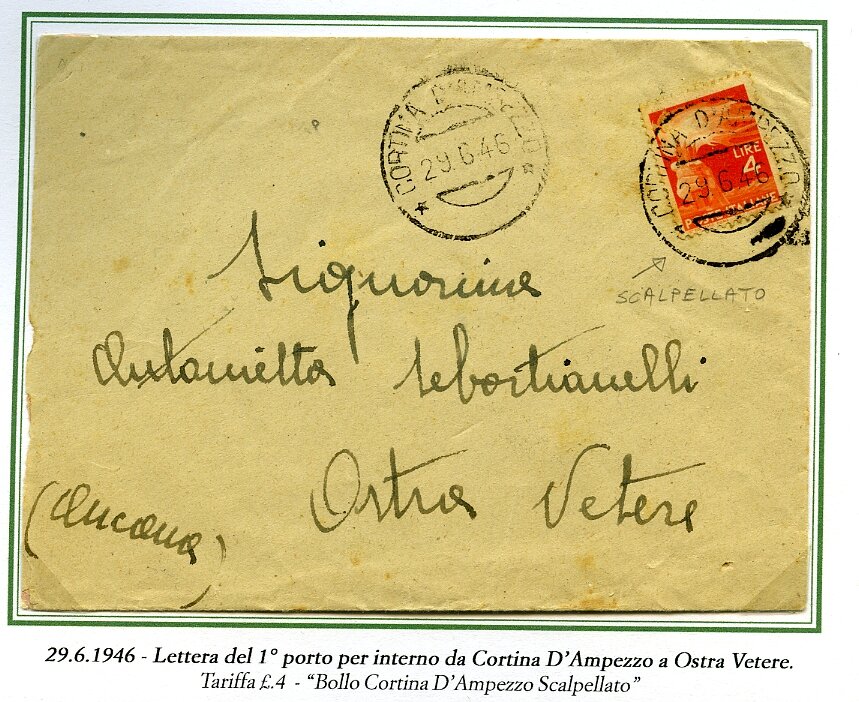 CORTINA D'AMPEZZO
29.6.46
CORTINA D'AMPEZZO
29.6.46
LIRE
4
SCALPELLATO
Signorina
Antonietta Sebastianelli
Ostra Vetere
(Ancona)
29.6.1946 - Lettera del 1° porto per interno da Cortina D'Ampezzo a Ostra Vetere.
Tariffa £.4 - "Bollo Cortina D'Ampezzo Scalpellato"